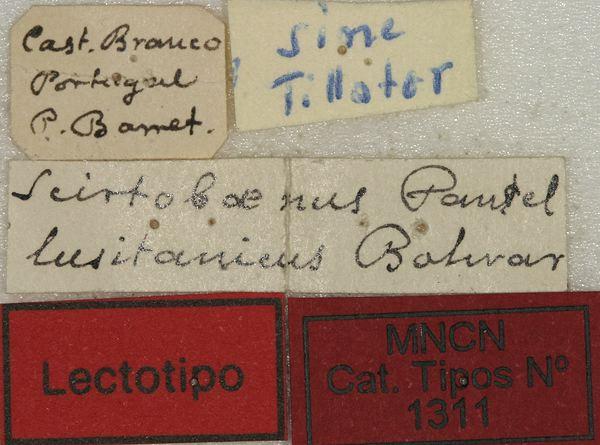 Cast. Branco
Portugal
P. Barret.
Sine
Tillotor
Scirtobænus Pantel
lusitanicus Bolivar
Lectotipo
MNCN
Cat. Tipos Nº
1311